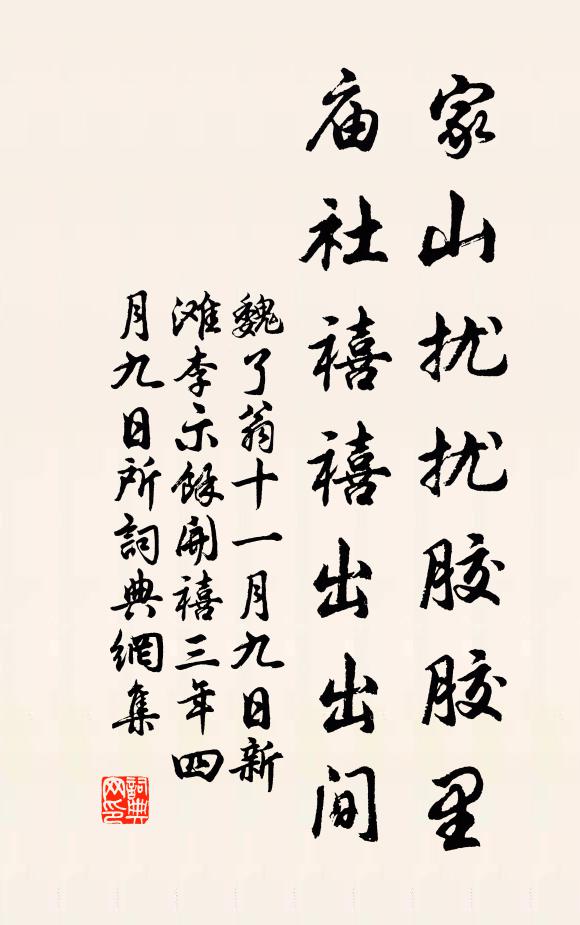 家山扰扰胶胶里
庙社禧禧出出间
魏了翁十一月九日新
滩李示馀开禧三年四
月九日所詞典網集
詞典网印